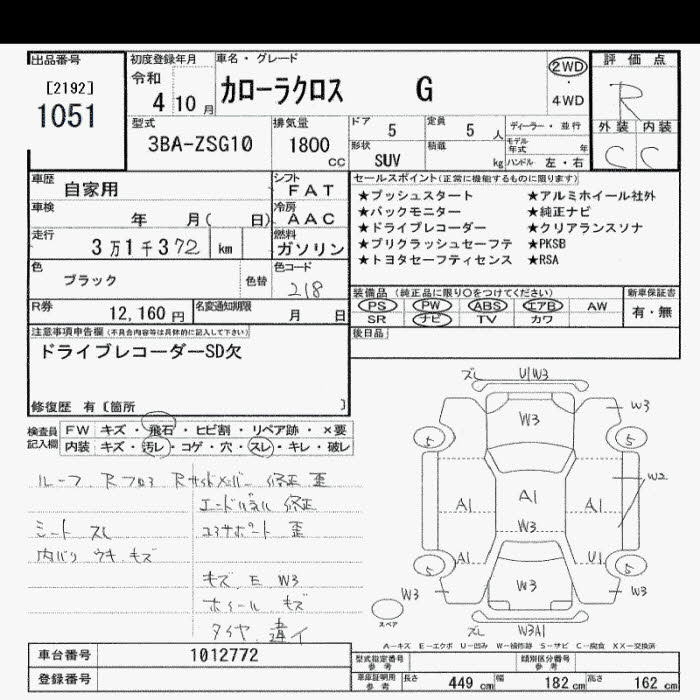 出品番号
[2192]
1051
初度登録年月
令和
4 10 月
車名・グレード
カローラクロス G
2WD
・
4WD
評価点
R
外装 内装
C C
型式
3BA-ZSG10
排気量
1800
CC
ドア
5
定員
5 人
形状
SUV
積載
kg
ディーラー・並行
モデル年式 年
ハンドル 左・右
車歴
自家用
シフト
FAT
車検
年 月( 日)
冷房
AAC
走行
3万1千372 km
燃料
ガソリン
色
ブラック
色替
色コード
218
R券
12,160 円
名変通知期限
月 日
セールスポイント(正常に機能するものに限ります)
★プッシュスタート ★アルミホイール社外
★バックモニター ★純正ナビ
★ドライブレコーダー ★クリアランスソナ
★プリクラッシュセーフテ ★PKSB
★トヨタセーフティセンス ★RSA
装備品 (純正品に限り○をつけてください)
PS PW ABS エアB AW
SR ナビ TV カワ
新車保証書
有・無
後日品
注意事項申告欄(不具合内容等は具体的に記入して下さい)
ドライブレコーダーSD欠
修復歴 有〔箇所 〕
検査員
記入欄
FW キズ・飛石・ヒビ割・リペア跡・×要
内装 キズ・汚レ・コゲ・穴・スレ・キレ・破レ
ルーフ Rフロア Rサイドメンバー 修正 歪
エンドパネル 修正
シート スレ コアサポート 歪
内バリ ウキ キズ
キズ E W3
ホイール キズ
タイヤ 違イ
ズレ U1W3
W3
W3
5 5
W2
A1 A1 A1
W3
A1 U1
5 5
W3 W3 W3
スペア
ズレ W3A1
A-キズ E-エクボ U-凹み W-補修跡 S-サビ C-腐食 XX-交換済
車台番号
1012772
登録番号
型式指定番号
参考
類別区分番号
参考
車庫証明用
参考
長さ 449 cm 幅 182 cm 高さ 162 cm